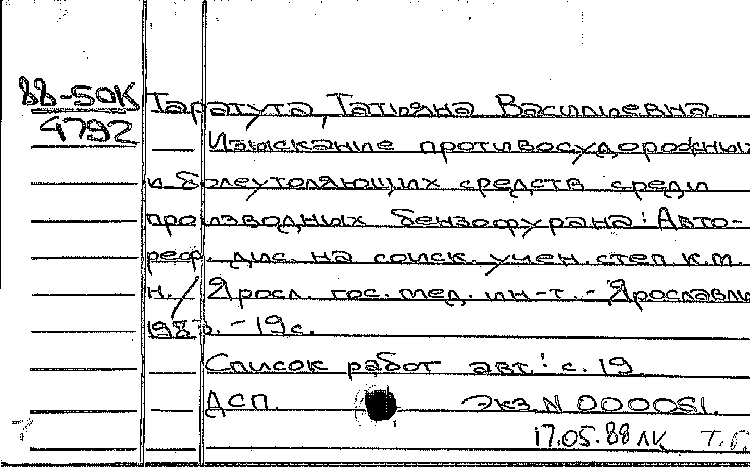 88-50К Таратута, Татьяна Васильевна
4792 Изыскание противосудорожных
и болеутоляющих средств среди
производных бензофурана: Авто-
реф. дис. на соиск. учен. степ. к.м.
н. / Яросл. гос. мед. ин-т. - Ярославль
1983. - 19 с.
Список работ авт.: с. 19
ДСП. Экз. N 000051.
17.05.88 ЛК Т.Г.